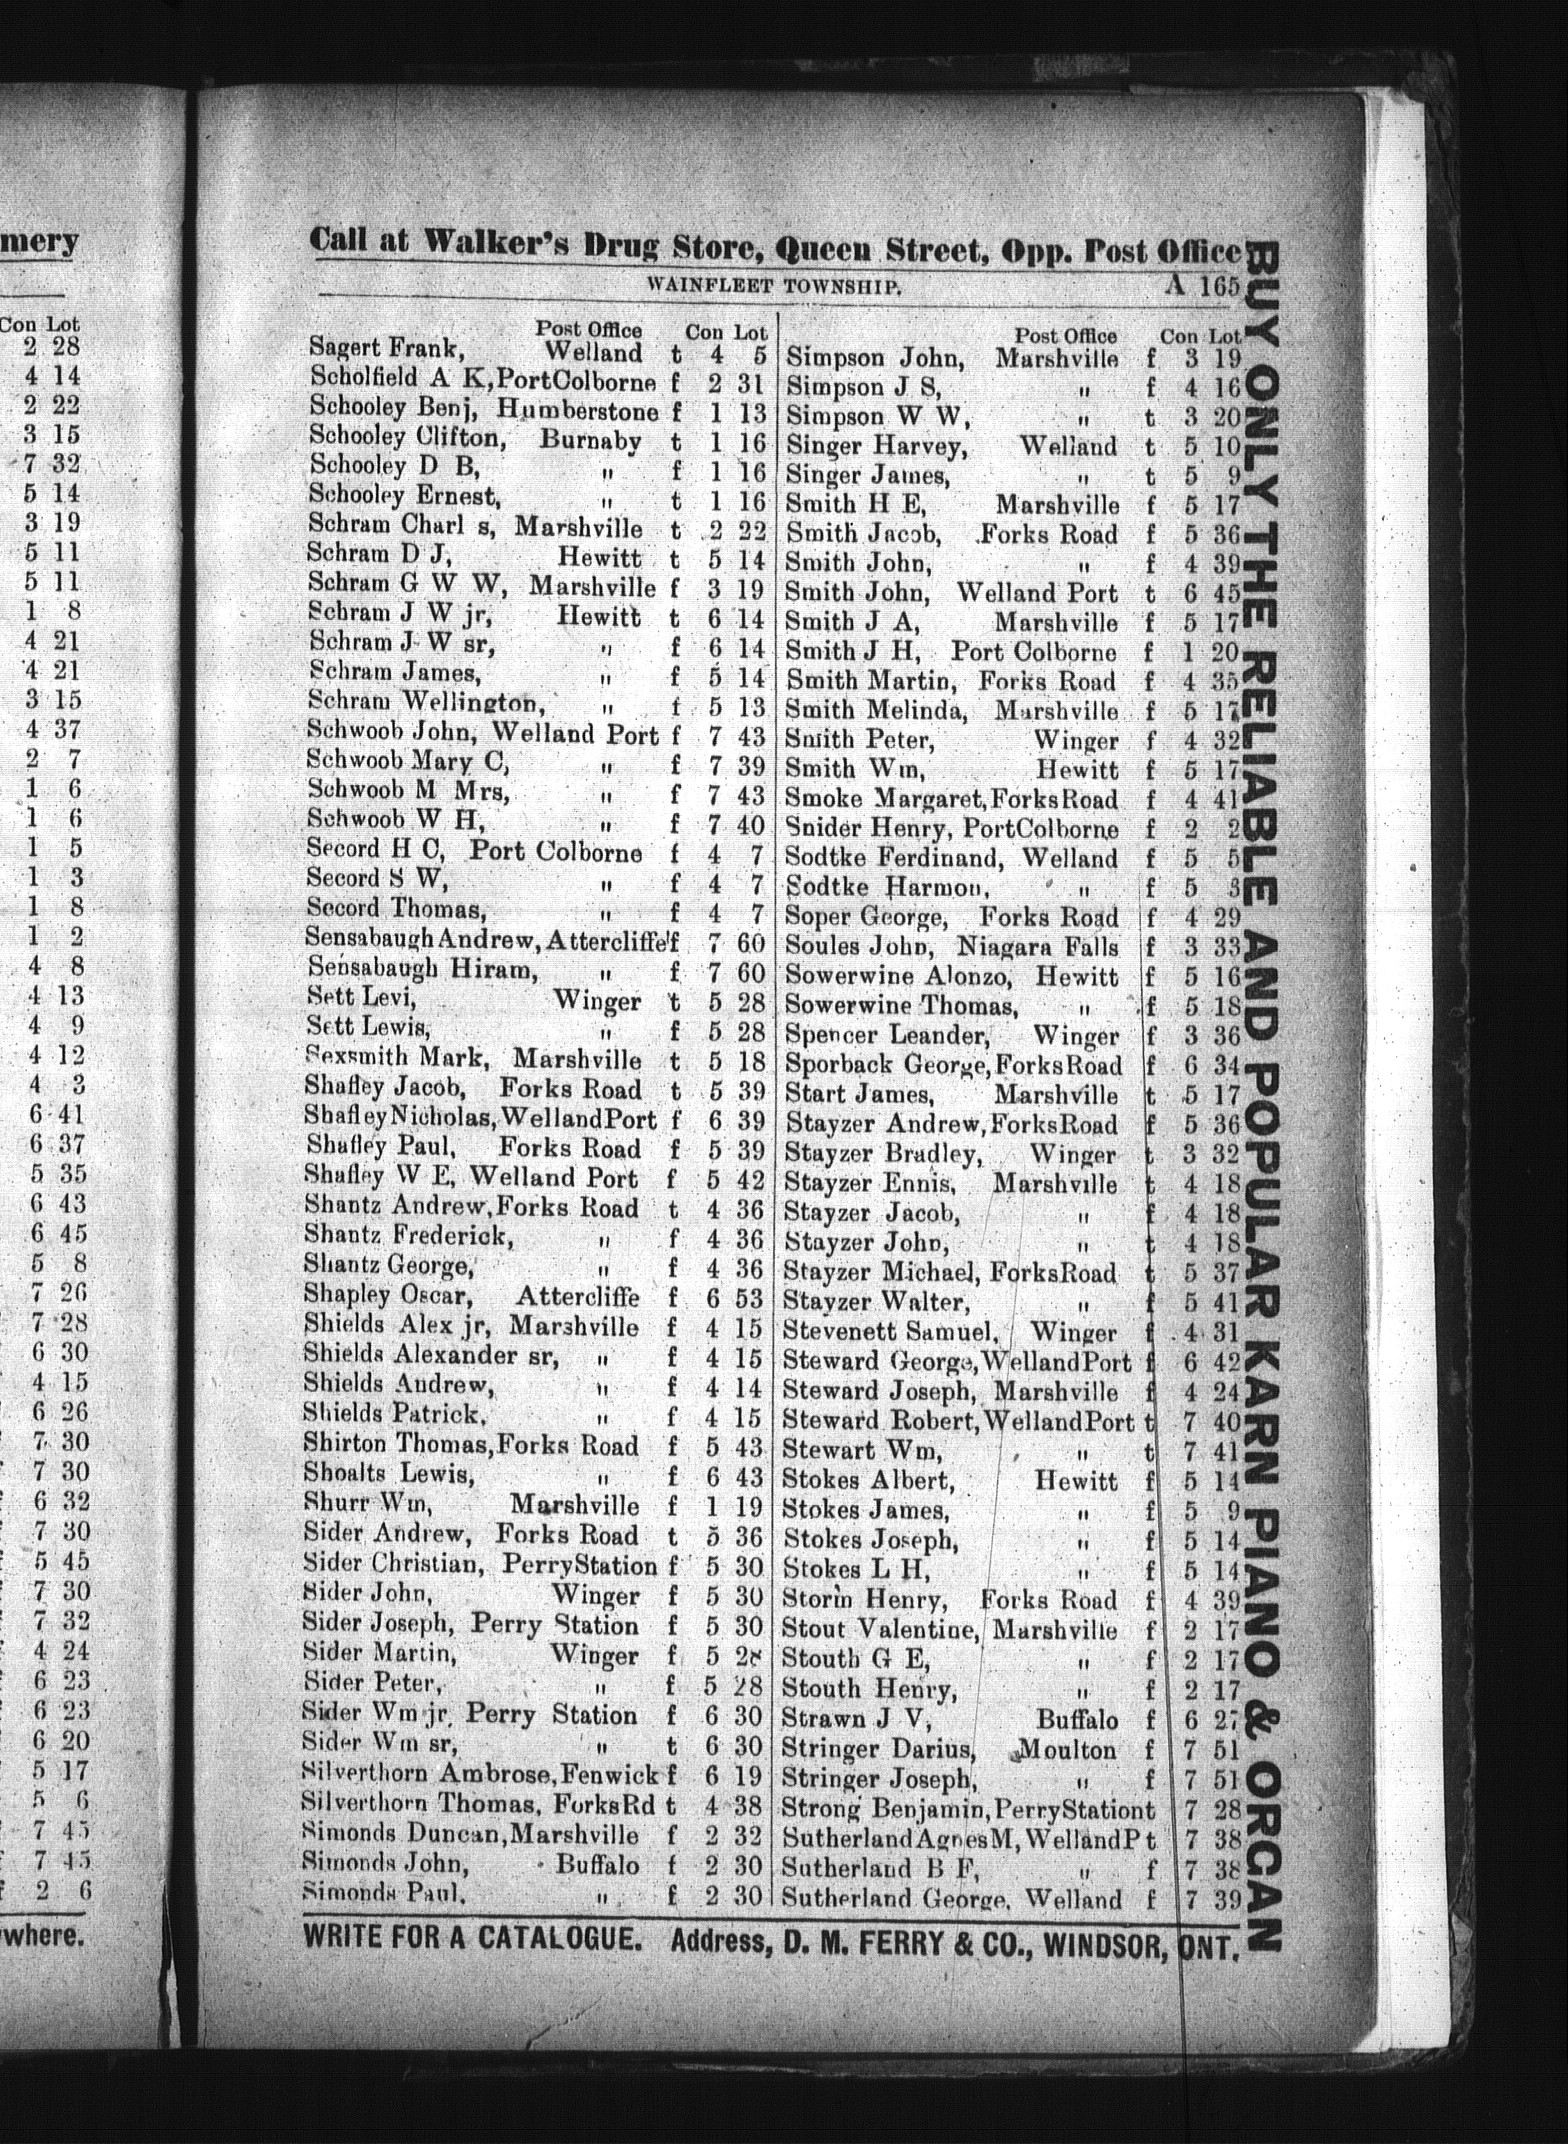 mery
Con Lot
2 28
4 14
2 22
3 15
7 32
5 14
3 19
5 11
5 11
1 8
4 21
4 21
3 15
4 37
2 7
1 6
1 6
1 5
1 3
1 8
1 2
4 8
4 13
4 9
4 12
4 3
6 41
6 37
5 35
6 43
6 45
5 8
7 26
7 28
6 30
4 15
6 26
7 30
7 30
6 32
7 30
5 45
7 30
7 32
4 24
6 23
6 23
6 20
5 17
5 6
7 45
7 45
2 6
where.
Call at Walker's Drug Store, Queen Street, Opp. Post Office
WAINFLEET TOWNSHIP. A 165
Post Office Con Lot
Sagert Frank, Welland t 4 5
Scholfield A K, PortColborne f 2 31
Schooley Benj, Humberstone f 1 13
Schooley Clifton, Burnaby t 1 16
Schooley D B, " f 1 16
Schooley Ernest, " t 1 16
Schram Charl s, Marshville t 2 22
Schram D J, Hewitt t 5 14
Schram G W W, Marshville f 3 19
Schram J W jr, Hewitt t 6 14
Schram J W sr, " f 6 14
Schram James, " f 5 14
Schram Wellington, " f 5 13
Schwoob John, Welland Port f 7 43
Schwoob Mary C, " f 7 39
Schwoob M Mrs, " f 7 43
Schwoob W H, " f 7 40
Secord H C, Port Colborne f 4 7
Secord S W, " f 4 7
Secord Thomas, " f 4 7
Sensabaugh Andrew, Attercliffe f 7 60
Sensabaugh Hiram, " f 7 60
Sett Levi, Winger t 5 28
Sett Lewis, " f 5 28
Sexsmith Mark, Marshville t 5 18
Shafley Jacob, Forks Road t 5 39
Shafley Nicholas, WellandPort f 6 39
Shafley Paul, Forks Road f 5 39
Shafley W E, Welland Port f 5 42
Shantz Andrew, Forks Road t 4 36
Shantz Frederick, " f 4 36
Shantz George, " f 4 36
Shapley Oscar, Attercliffe f 6 53
Shields Alex jr, Marshville f 4 15
Shields Alexander sr, " f 4 15
Shields Andrew, " f 4 14
Shields Patrick, " f 4 15
Shirton Thomas, Forks Road f 5 43
Shoalts Lewis, " f 6 43
Shurr Wm, Marshville f 1 19
Sider Andrew, Forks Road t 5 36
Sider Christian, PerryStation f 5 30
Sider John, Winger f 5 30
Sider Joseph, Perry Station f 5 30
Sider Martin, Winger f 5 28
Sider Peter, " f 5 28
Sider Wm jr, Perry Station f 6 30
Sider Wm sr, " t 6 30
Silverthorn Ambrose, Fenwick f 6 19
Silverthorn Thomas, ForksRd t 4 38
Simonds Duncan, Marshville f 2 32
Simonds John, Buffalo f 2 30
Simonds Paul, " f 2 30
Post Office Con Lot
Simpson John, Marshville f 3 19
Simpson J S, " f 4 16
Simpson W W, " t 3 20
Singer Harvey, Welland t 5 10
Singer James, " t 5 9
Smith H E, Marshville f 5 17
Smith Jacob, Forks Road f 5 36
Smith John, " f 4 39
Smith John, Welland Port t 6 45
Smith J A, Marshville f 5 17
Smith J H, Port Colborne f 1 20
Smith Martin, Forks Road f 4 35
Smith Melinda, Marshville f 5 17
Smith Peter, Winger f 4 32
Smith Wm, Hewitt f 5 17
Smoke Margaret, ForksRoad f 4 41
Snider Henry, PortColborne f 2 2
Sodtke Ferdinand, Welland f 5 5
Sodtke Harmon, " f 5 3
Soper George, Forks Road f 4 29
Soules John, Niagara Falls f 3 33
Sowerwine Alonzo, Hewitt f 5 16
Sowerwine Thomas, " f 5 18
Spencer Leander, Winger f 3 36
Sporback George, ForksRoad f 6 34
Start James, Marshville t 5 17
Stayzer Andrew, ForksRoad f 5 36
Stayzer Bradley, Winger t 3 32
Stayzer Ennis, Marshville t 4 18
Stayzer Jacob, " f 4 18
Stayzer John, " t 4 18
Stayzer Michael, ForksRoad t 5 37
Stayzer Walter, " f 5 41
Stevenett Samuel, Winger f 4 31
Steward George, WellandPort f 6 42
Steward Joseph, Marshville f 4 24
Steward Robert, WellandPort t 7 40
Stewart Wm, " t 7 41
Stokes Albert, Hewitt f 5 14
Stokes James, " f 5 9
Stokes Joseph, " f 5 14
Stokes L H, " f 5 14
Storm Henry, Forks Road f 4 39
Stout Valentine, Marshville f 2 17
Stouth G E, " f 2 17
Stouth Henry, " f 2 17
Strawn J V, Buffalo f 6 27
Stringer Darius, Moulton f 7 51
Stringer Joseph, " f 7 51
Strong Benjamin, PerryStation t 7 28
Sutherland Agnes M, WellandP t 7 38
Sutherland B F, " f 7 38
Sutherland George, Welland f 7 39
WRITE FOR A CATALOGUE. Address, D. M. FERRY & CO., WINDSOR, ONT.
BUY ONLY THE RELIABLE AND POPULAR KARN PIANO & ORGAN